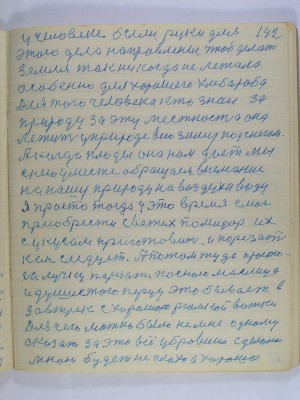 у человека были руки для 142
этого дела направлены чтоб делат
земля так никогда не летала
особенно для хорошего хлибароба
Для того человека кто знаи за
природу за эту местность а она
летит у природе всю зиму под снегом
А когда плоды она нам дает мы
с нею умести обращаем внимание
на нашу природу на воздух а воду
Я просто тогда у это время смог
приобрести свежих помидор их
с укусам приготовит и порезат
как следует. А потом туда просто
на лучку парезат посною маслица
и душистого перцу это бывает в
завтрак с хорошо рюмкой вотки
Для чего можно было не мне одному
сказат за это всё убровни сделано
мною будет неплохо а хорошо